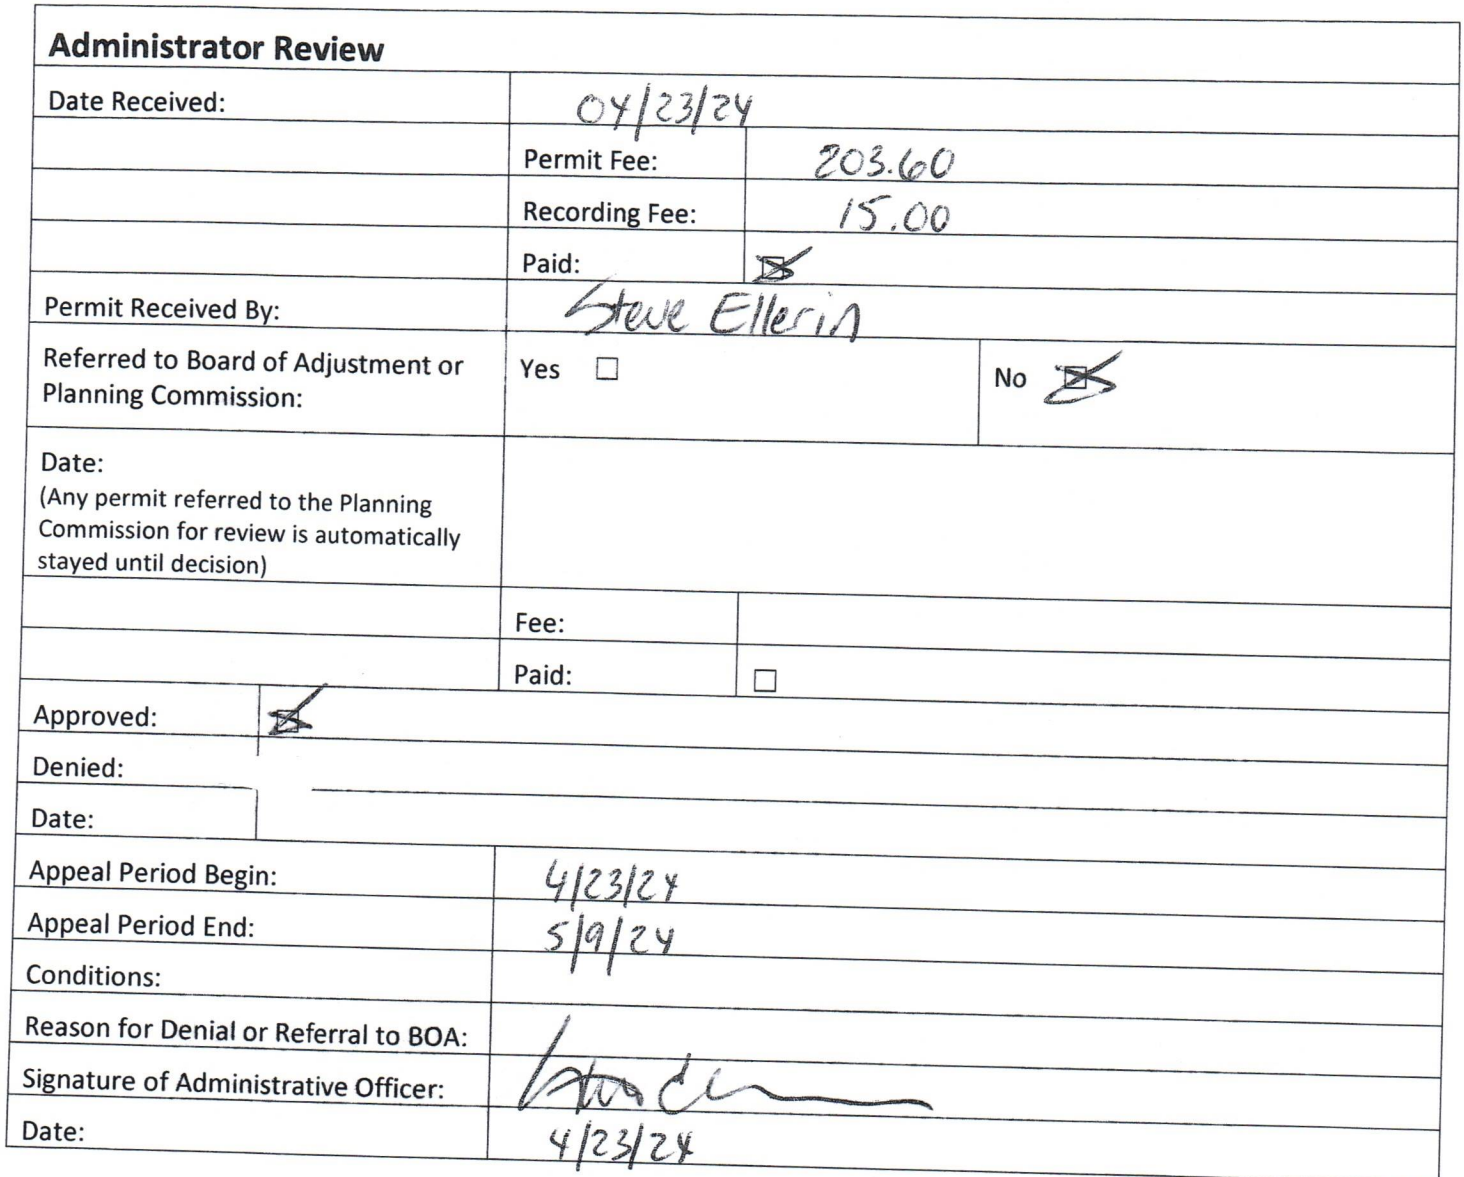 Administrator Review
Date Received: 04/23/24
Permit Fee: 203.60
Recording Fee: 15.00
Paid: ☒
Permit Received By: Steve Ellerin
Referred to Board of Adjustment or Yes ☐ No ☒
Planning Commission:
Date:
(Any permit referred to the Planning
Commission for review is automatically
stayed until decision)
Fee:
Paid: ☐
Approved: ☒
Denied:
Date:
Appeal Period Begin: 4/23/24
Appeal Period End: 5/9/24
Conditions:
Reason for Denial or Referral to BOA:
Signature of Administrative Officer:
Date: 4/23/24